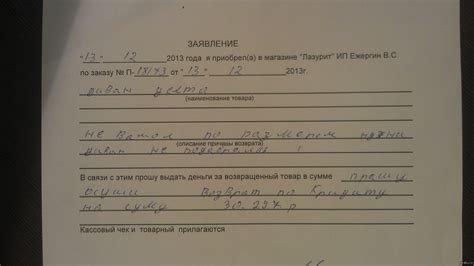 ЗАЯВЛЕНИЕ
"13" 12 2013 года я приобрел(а) в магазине "Лазурит" ИП Ежергин В.С.
по заказу № П- от "13" 12 2013г.
диван
(наименование товара)
не по размером нужни
(описание причины возврата)
диван не
В связи с этим прошу выдать деньги за возвращенный товар в сумме прошу
Возврат по Кредиту
на сумму 30.227 р
Кассовый чек и товарный прилагаются